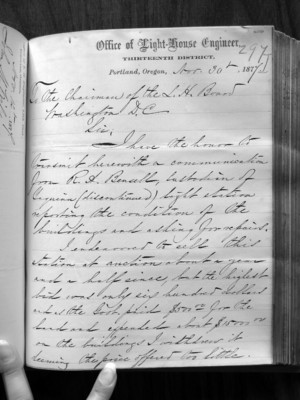 Office of Light-House Engineer,
THIRTEENTH DISTRICT,
Portland, Oregon, Nov. 30th 187
To the Chairman of the L. H. Board
Washington D.C
Sir;
I have the honor to
transmit herewith a communication
from R. H. Bensell, Custodian of
Yaquina (discontinued) Light station
reporting the condition of the
buildings and asking for repairs.
I endeavored to sell this
station at auction about a year
and a half since, but the highest
bid was only six hundred dollars
and as the Govt. paid $500 for the
land and expended about
on the buildings I withdrew it
deeming the price offered too little.